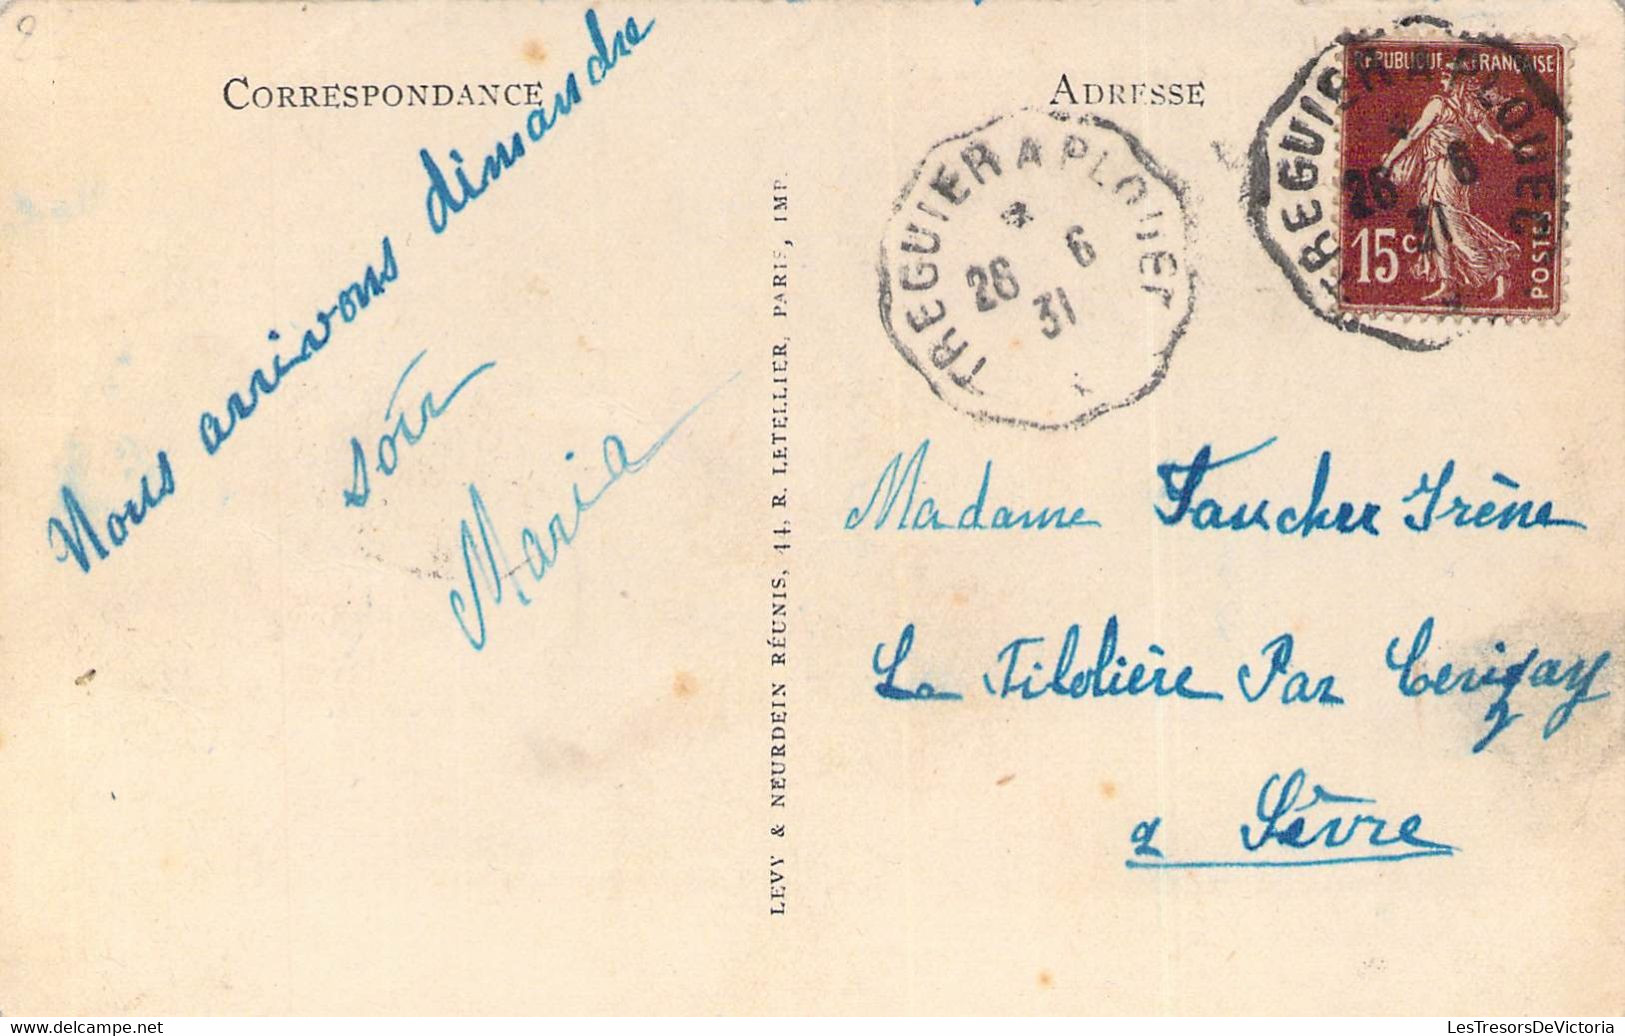 CORRESPONDANCE
Nous arrivons dimanche
soir
Maria
LEVY & NEURDEIN RÉUNIS, 44, R. LETELLIER, PARIS, IMP.
ADRESSE
TREGUIER A PLOUEC
26 6
31
REPUBLIQUE FRANÇAISE
15 c
POSTES
TREGUIER A PLOUEC
26 6
31
Madame Faucher Irène
La Tibolière Par Cerizay
2 Sèvre
LesTresorsDeVictoria.delcampe.net